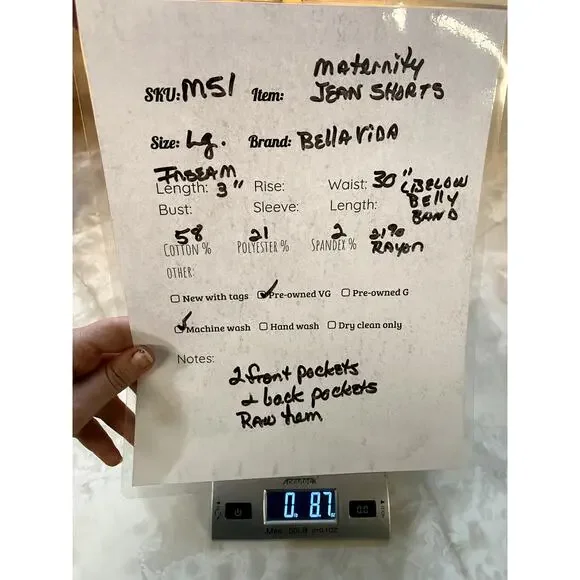 SKU: M51 Item: Maternity JEAN SHORTS
Size: Lg. Brand: BELLA VIDA
INSEAM
Length: 3" Rise: Waist: 30" (BELOW BELLY BAND
Bust: Sleeve: Length:
58 21 2 21%
COTTON % POLYESTER % SPANDEX % RAYON
OTHER:
New with tags Pre-owned VG Pre-owned G
Machine wash Hand wash Dry clean only
Notes:
2 front pockets
2 back pockets
RAW hem
0 lb 8.7 oz
0.0